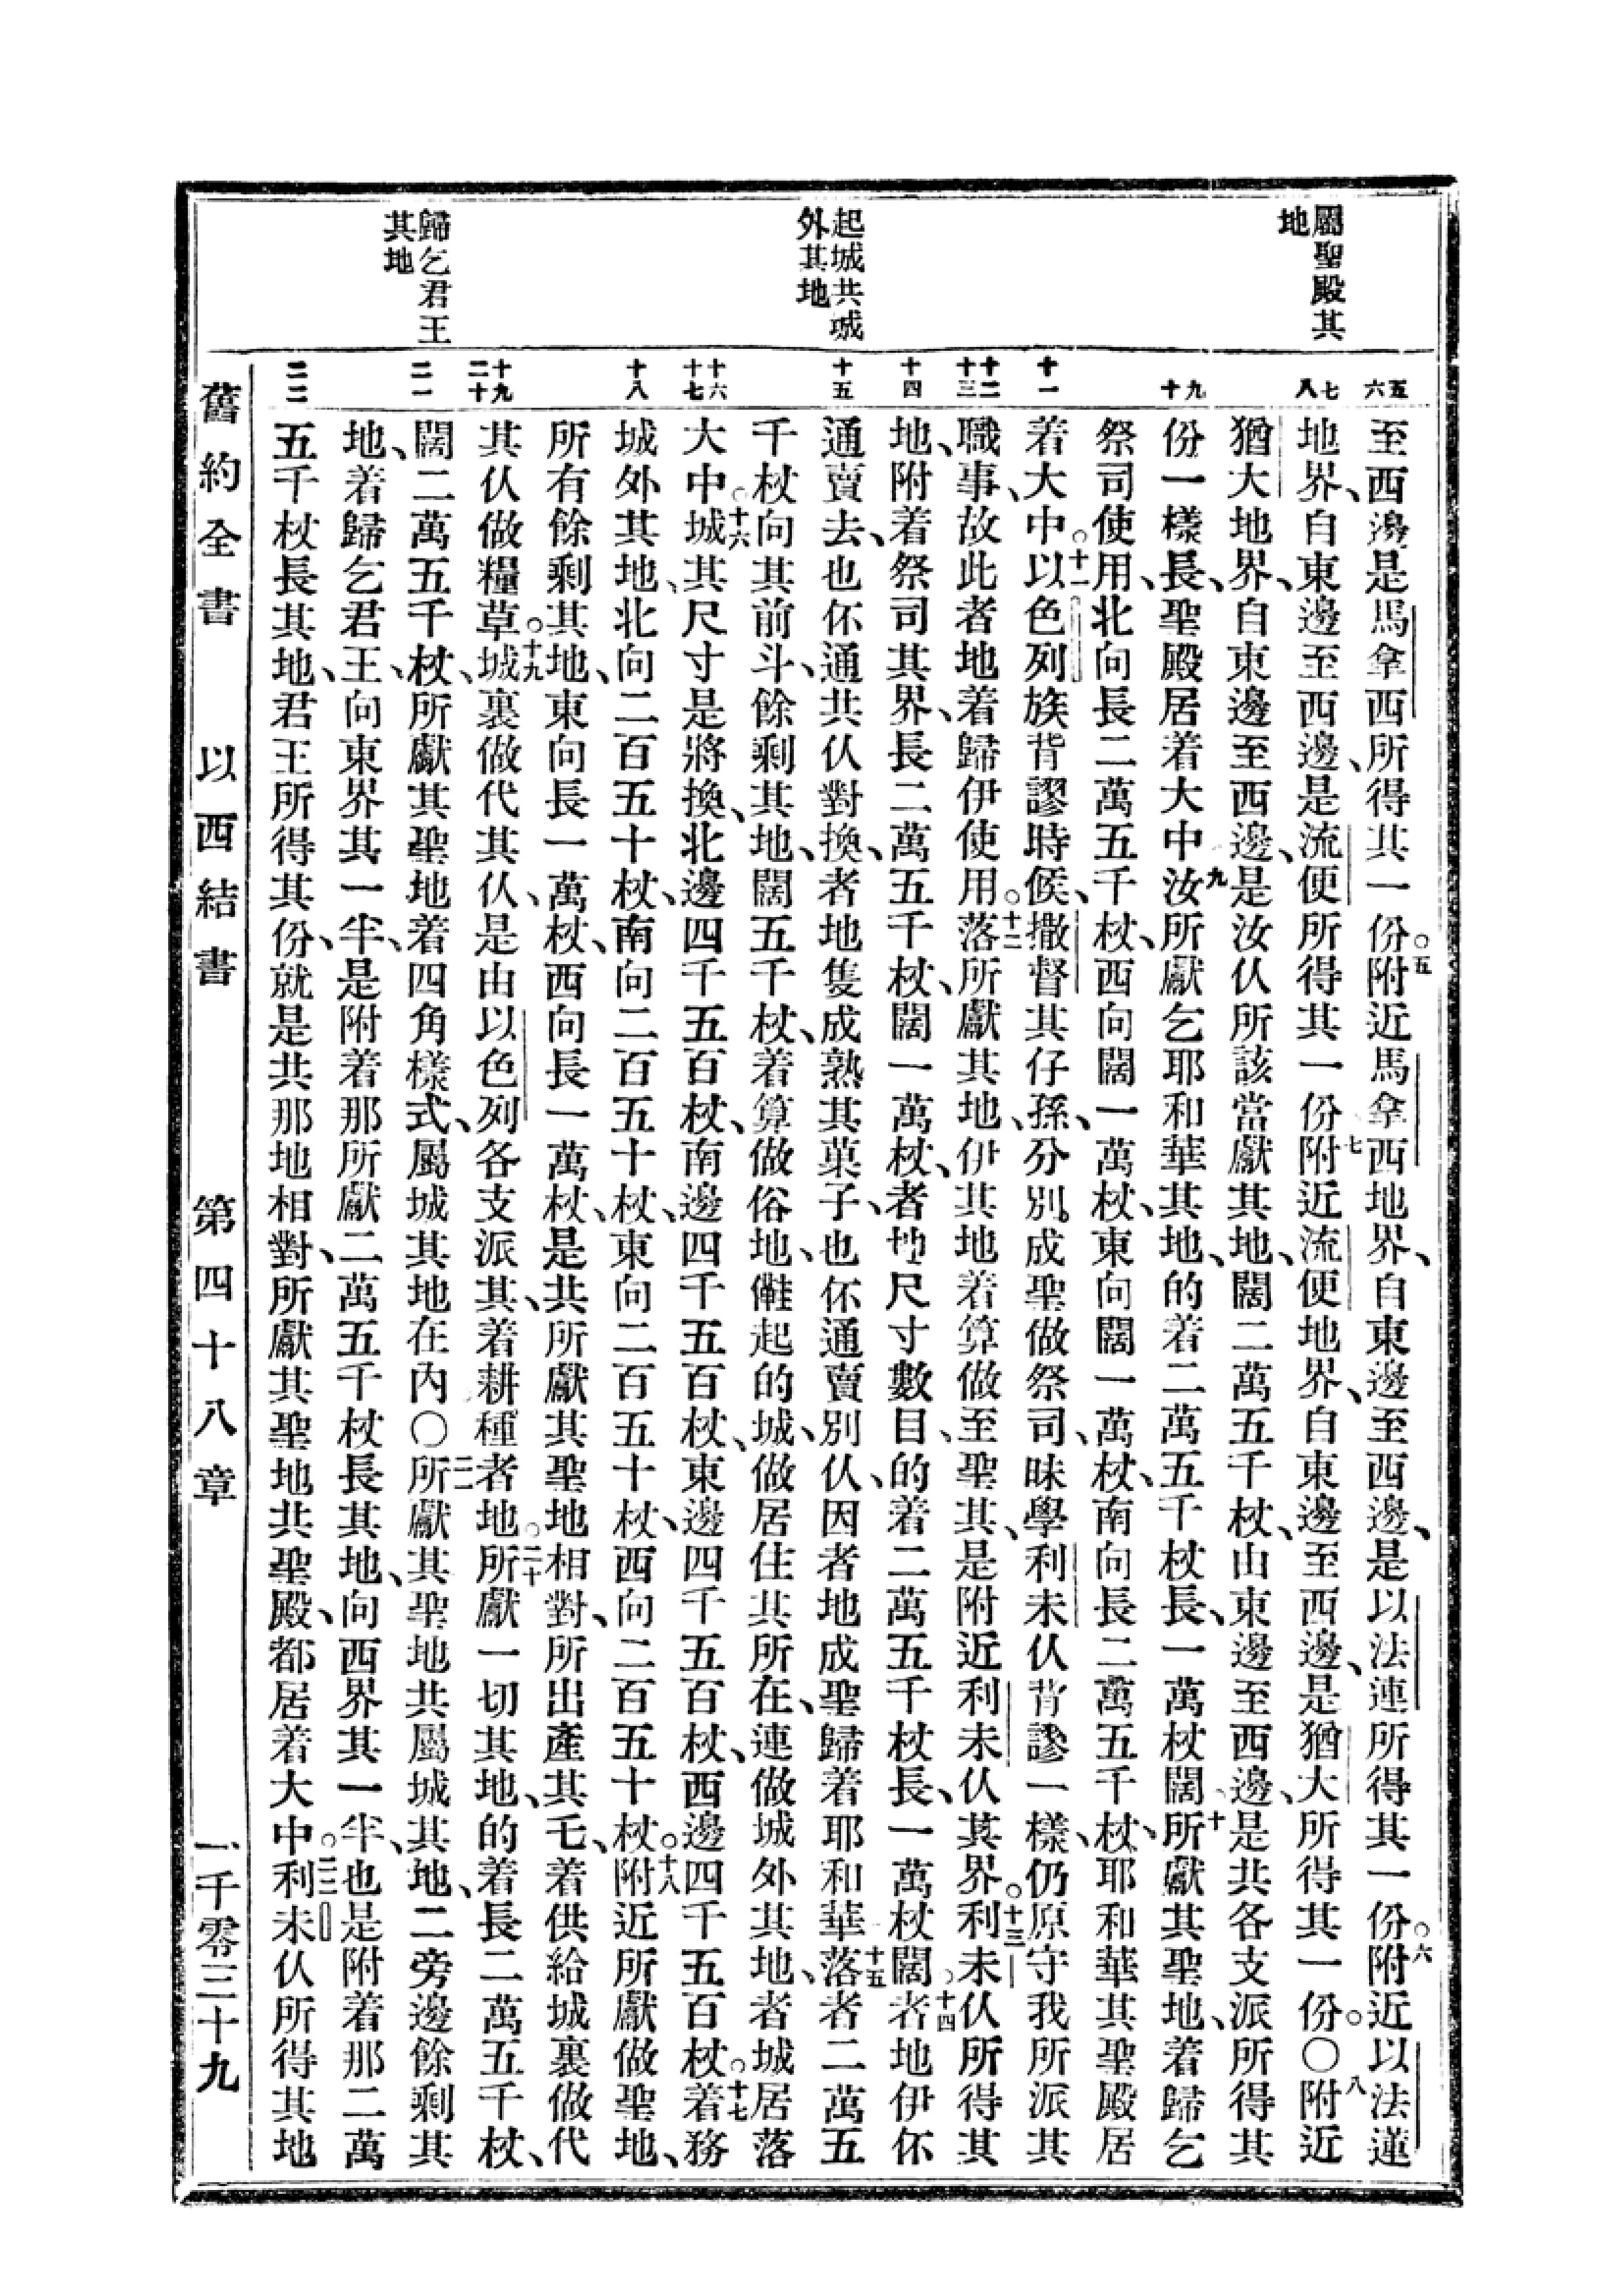 屬聖殿其
地
起城共城
外其地
歸乞君王
其地
五 六 七 八 九 十 十一 十二 十三 十四 十五 十六 十七 十八 十九 二十 二一 二二
至西邊是馬拿西所得其一份。五附近馬拿西地界、自東邊至西邊、是以法連所得其一份。六附近以法蓮
地界、自東邊至西邊、是流便所得其一份七附近流便地界、自東邊至西邊、是猶大所得其一份。〇八附近
猶大地界、自東邊至西邊、是汝仈所該當獻其地、闊二萬五千杖、由東邊至西邊、是共各支派所得其
份一樣長、聖殿居着大中九汝所獻乞耶和華其地、的着二萬五千杖長、一萬杖闊十所獻其聖地、着歸乞
祭司使用、北向長二萬五千杖、西向闊一萬杖、東向闊一萬杖、南向長二萬五千杖、耶和華其聖殿居
着大中。十一以色列族背謬時候、撒督其仔孫、分別成聖做祭司、昧學利未仈背謬一樣、仍原守我所派其
職事、故此者地着歸伊使用。十二落所獻其地、伊其地着算做至聖其、是附近利未仈其界。十三利未仈所得其
地、附着祭司其界、長二萬五千杖、闊一萬杖、者地尺寸數目、的着二萬五千杖長、一萬杖闊。十四者地伊伓
通賣去、也伓通共仈對換、者地隻成熟其菓子、也伓通賣別仈、因者地成聖歸着耶和華十五落者二萬五
千杖向其前斗、餘剩其地、闊五千杖、着算做俗地、儺起的城、做居住其所在、連做城外其地、者城居落
大中。十六城其尺寸是將換、北邊四千五百杖、南邊四千五百杖、東邊四千五百杖、西邊四千五百杖。十七着務
城外其地、北向二百五十杖、南向二百五十杖、東向二百五十杖、西向二百五十杖。十八附近所獻做聖地、
所有餘剩其地、東向長一萬杖、西向長一萬杖、是共所獻其聖地相對、所出產其乇、着供給城裏做代
其仈做糧草。十九城裏做代其仈、是由以色列各支派其、着耕種者地。二十所獻一切其地、的着長二萬五千杖、
闊二萬五千杖、所獻其聖地着四角樣式、屬城其地在內〇二一所獻其聖地共屬城其地、二旁邊餘剩其
地、着歸乞君王、向東界其一半、是附着那所獻二萬五千杖長其地、向西界其一半、也是附着那二萬
五千杖長其地、君王所得其份、就是共那地相對、所獻其聖地共聖殿、都居着大中。二二利未仈所得其地
舊約全書 以西結書 第四十八章 一千零三十九